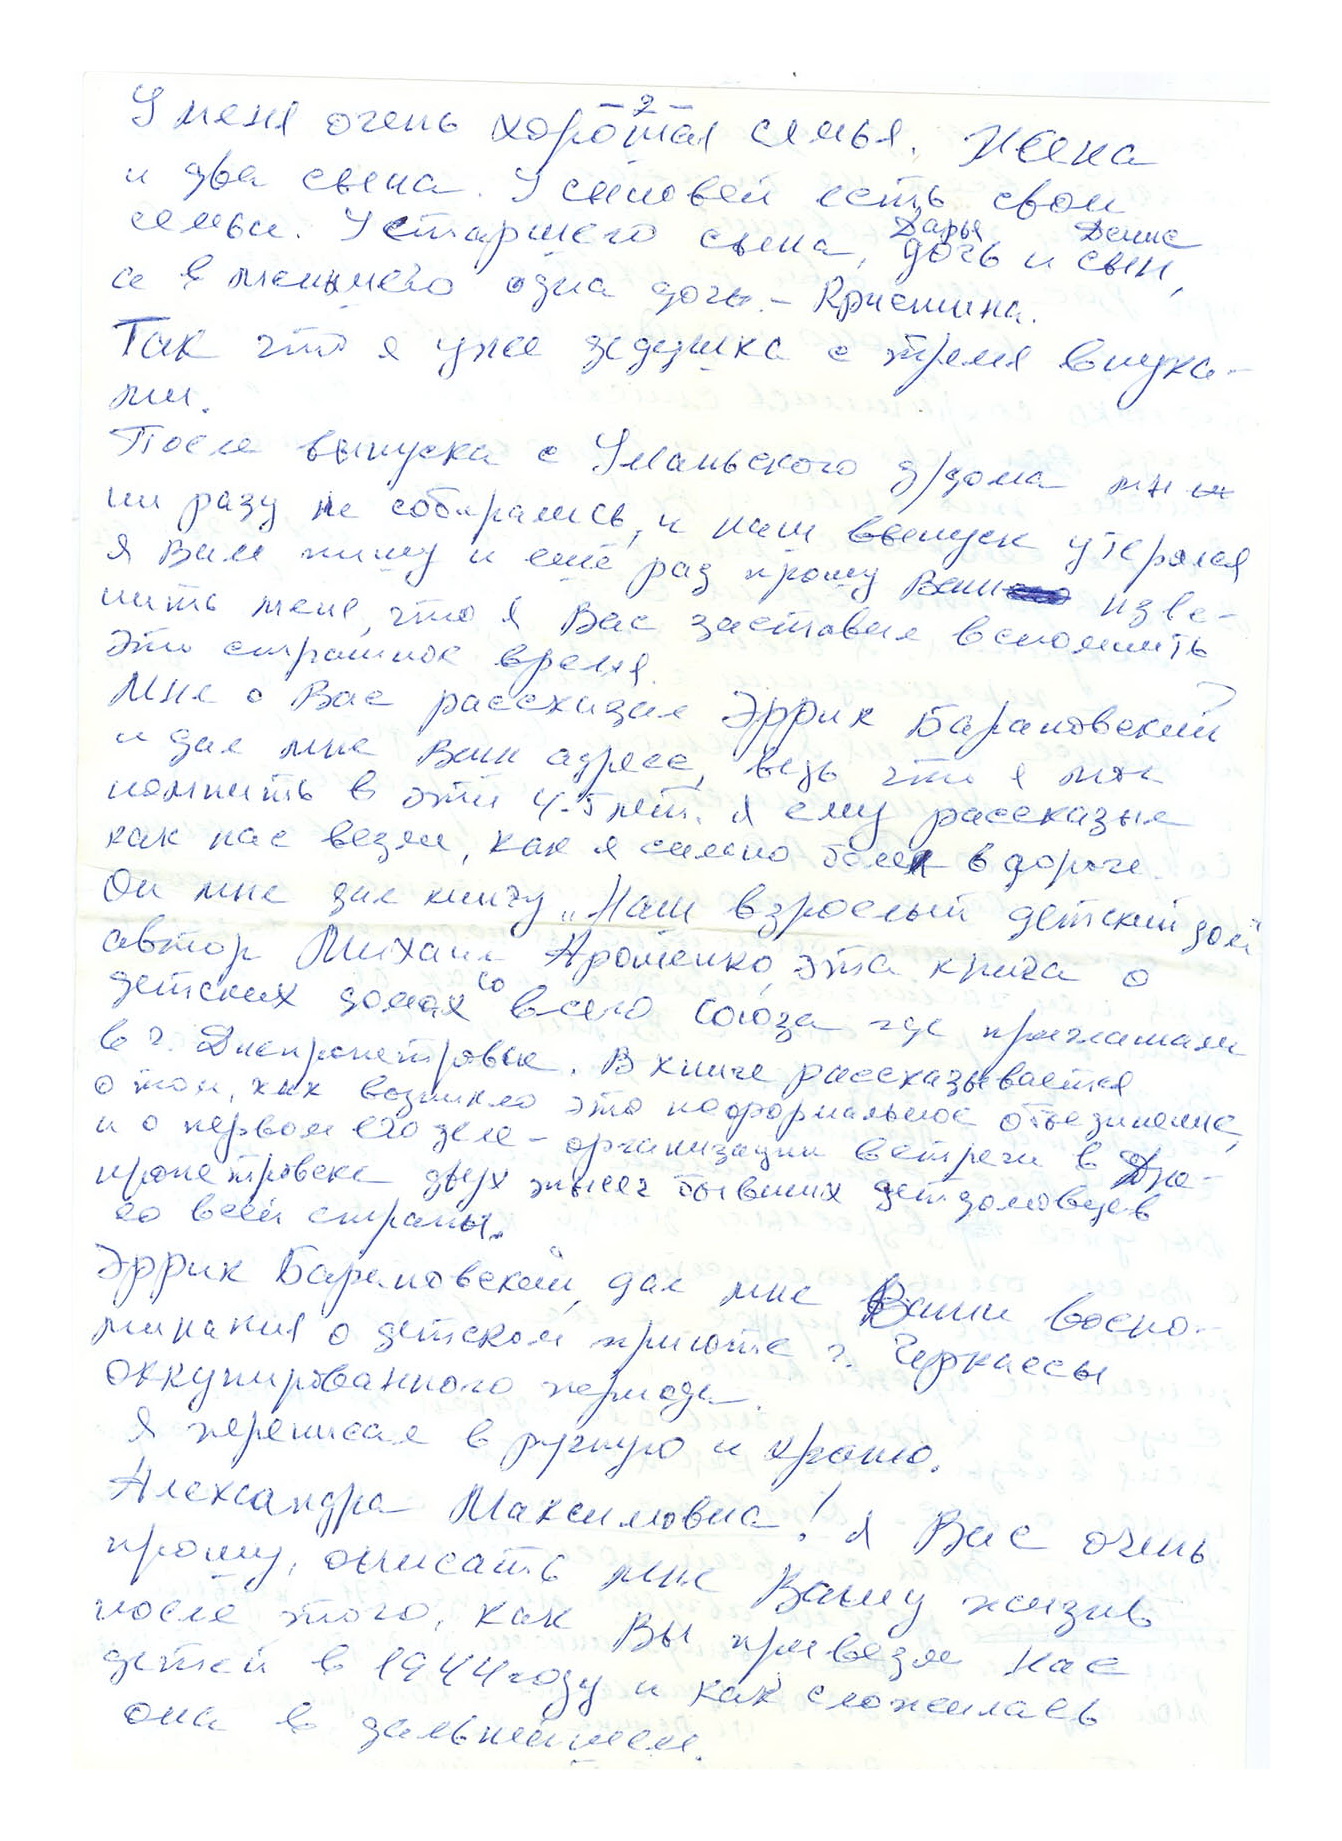 - 2 -
У меня очень хорошая семья. Жена
и два сына. У сыновей есть свои
семьи. У старшего сына, дочь Дарья и сын Денис,
а в меньшего одна дочь - Кристина.
Так что я уже дедушка с тремя внука-
ми.
После выпуска с Уманьского д/дома мы
ни разу не собирались, и наш выпуск утерялся
я Вам пишу и ещё раз прошу Вас изве-
нить меня, что я Вас заставил вспомнить
это страшное время.
Мне о Вас рассказал Эррик Барановский
и дал мне Ваш адрес, ведь что я мог
помнить в эти 4-5 лет. Я ему рассказыл
как нас везли, как я сильно болел в дороге.
Он мне дал книгу „Наш взрослый детский дом"
автор Михаил Ярошенко, эта книга о
детских домах со всего Союза где приглашали
в г. Днепропетровск. В книге рассказывается
о том, как возникло это неформальное объединение,
и о первом его деле - организации встречи в Дне-
пропетровске двух тысяч бывших детдомовцев
со всей страны.
Эррик Барановский, дал мне Ваши воспо-
минания о детском приюте г. Черкассы
оккупированного периода.
Я переписал в ручную и храню.
Александра Максимовна! Я Вас очень
прошу, описать мне Вашу жизнь
после этого, как Вы привезли нас
детей в 1944 году и как сложилась
она в дальнейшем.